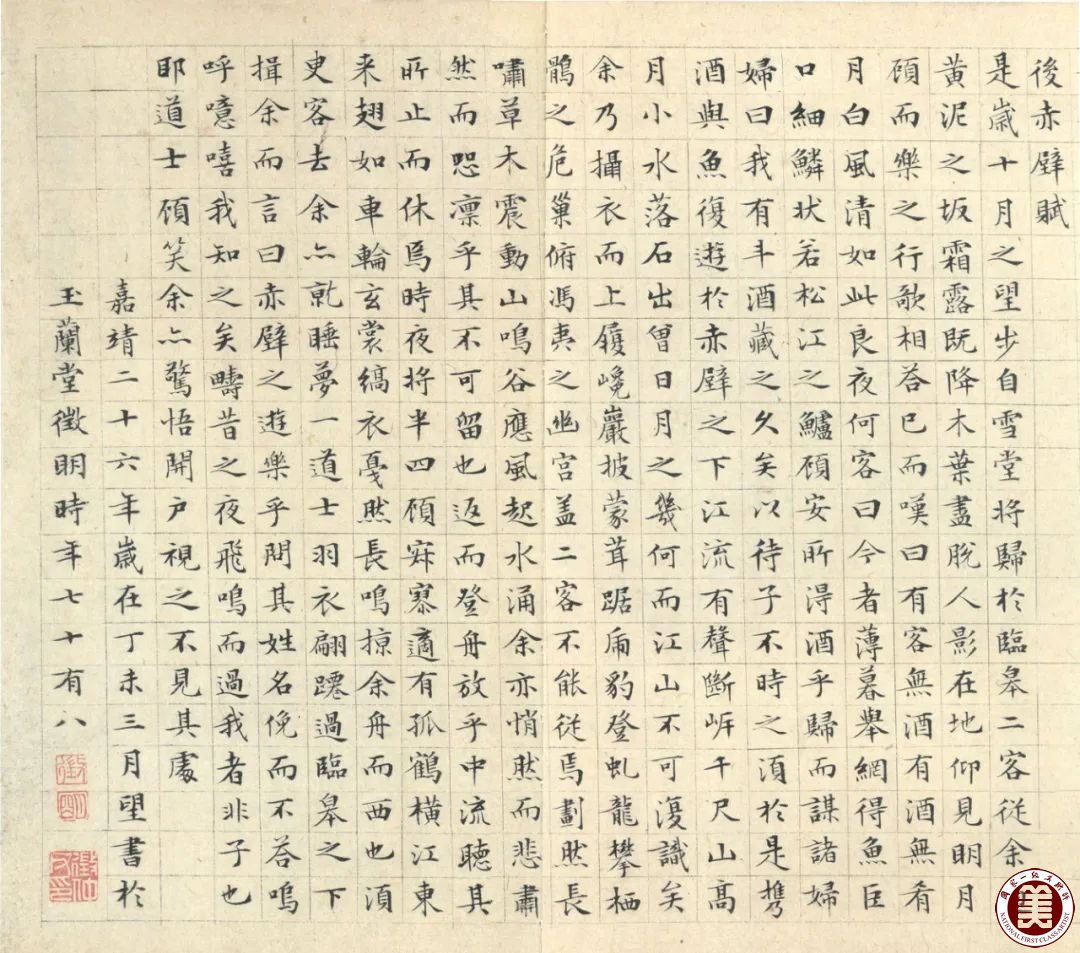 後赤壁賦
是歲十月之望步自雪堂將歸於臨皋二客從余
黃泥之坂霜露既降木葉盡脫人影在地仰見明月
顧而樂之行歌相答已而嘆曰有客無酒有酒無肴
月白風清如此良夜何客曰今者薄暮舉網得魚巨
口細鱗狀若松江之鱸顧安所得酒乎歸而謀諸婦
婦曰我有斗酒藏之久矣以待子不時之須於是攜
酒與魚復遊於赤壁之下江流有聲斷岸千尺山高
月小水落石出曾日月之幾何而江山不可復識矣
余乃攝衣而上履巉巖披蒙茸踞虎豹登虬龍攀栖
鶻之危巢俯馮夷之幽宮蓋二客不能從焉劃然長
嘯草木震動山鳴谷應風起水涌余亦悄然而悲肅
然而恐凜乎其不可留也返而登舟放乎中流聽其
所止而休焉時夜將半四顧寂寥適有孤鶴橫江東
来翅如車輪玄裳縞衣戛然長鳴掠余舟而西也須
臾客去余亦就睡夢一道士羽衣翩躚過臨皋之下
揖余而言曰赤壁之遊樂乎問其姓名俛而不答嗚
呼噫嘻我知之矣疇昔之夜飛鳴而過我者非子也
耶道士顧笑余亦驚悟開戶視之不見其處
嘉靖二十六年歲在丁未三月望書於
玉蘭堂徵明時年七十有八
徵明
徵仲父印
國家一級美術師
美
NATIONAL FIRST CLASS ARTIST